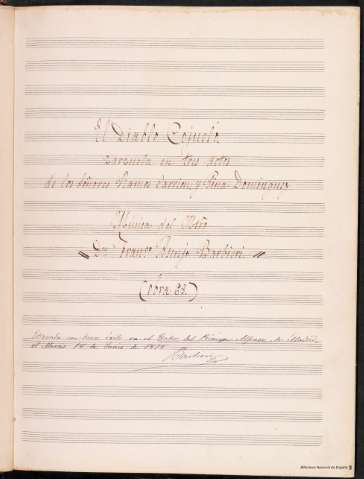 El Diablo Cojuelo
zarzuela en tres actos
de los Señores Ramos Carrion, y Pina Dominguez
Musica del Mtro
Dn. Franco. Asenjo Barbieri
(Obra 62.)
Estrenada con buen éxito en el Teatro del Principe Alfonso de Madrid,
el Martes 18 de Junio de 1878.
Barbieri
Biblioteca Nacional de España